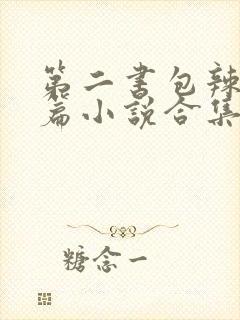 第二书包辣
篇小说合集
糖念一